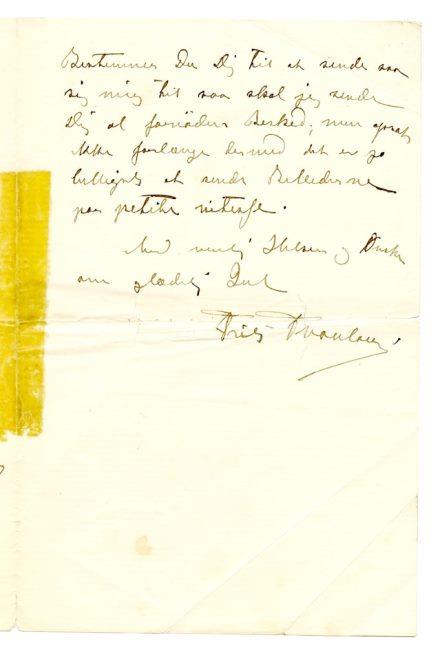 Bestemmer Du Dig til at sende saa
sig mig til saa skal jeg sende
Dig al fornöden Besked; men opsæt
ikke forlænge dermed det er jo
billigst at sende Billederne
paa petite vitesse.
Med venlig Hilsen og Ønske
om glædelig Jul
Frits Thaulow.